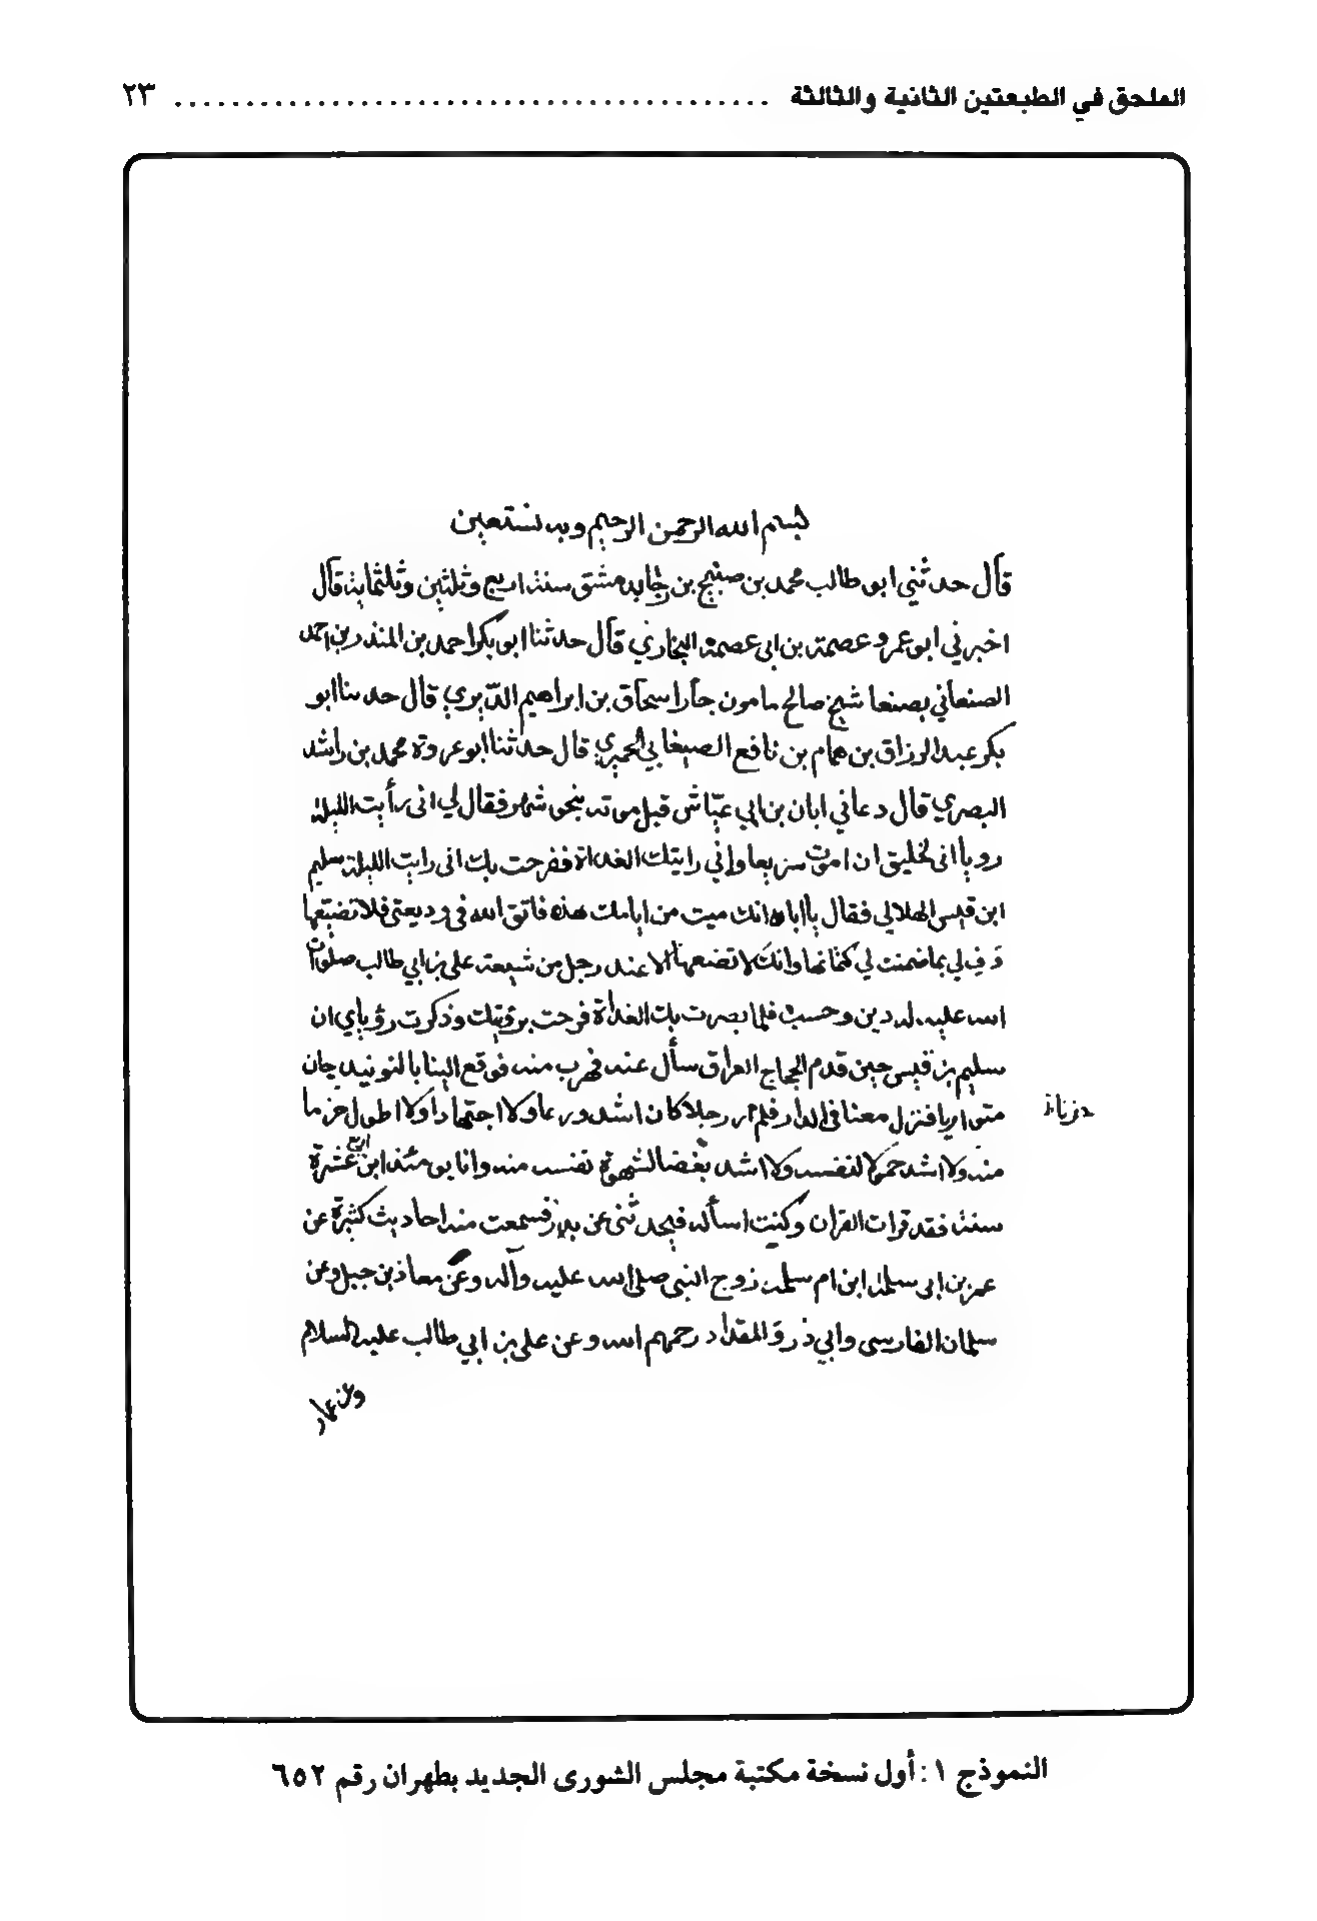 الملحق في الطبعتين الثانية والثالثة ........................................ ٢٣
بسم الله الرحمن الرحيم وبه نستعين
قال حدثني ابو طالب محمد بن صبيح بن رجا بدمشق سنة اربع وثلثين وثلثماية قال
اخبرني ابو عمرو عصمة بن ابى عصمة البخاري قال حدثنا ابو بكر احمد بن المنذر بن احمد
الصنعاني بصنعا شيخ صالح مامون جار اسحاق بن ابراهيم الدبري قال حدثنا ابو
بكر عبد الرزاق بن همام بن نافع الصيغاني الحميري قال حدثنا ابو عروة محمد بن راشد
البصري قال دعاني ابان بن ابي عيّاش قبل موته بنحو شهر فقال لي انى رأيت الليلة
رويا انى لخليق ان اموت سريعا وإني رايتك الغداة ففرحت بك انى رايت الليلة سليم
ابن قيس الهلالي فقال يا ابان انك ميت من ايامك هذه فاتق الله في وديعتى فلا تضيّعها
وَفِ لي بما ضمنت لي كتمانها وانك لا تضعها الا عند رجل من شيعة على بن ابي طالب صلوات
الله عليه له دين وحسب فلما بصرت بك الغداة فرحت برؤيتك وذكرت رؤياي ان
سليم بن قيس حين قدم الحجاج العراق سأل عنه فهرب منه فوقع الينا بالنوبندجان
متواريا فنزل معنا في الدار فلم ار رجلا كان اشد ورعا ولا اجتهادا ولا اطول حزنا
منه ولا اشد خمولا لنفسه ولا اشد بغضا لشهوة نفسه منه وانا يومئذ ابن اربع عشرة
سنة فقد قرات القران وكنت اسأله فيحدثنى عن بدر فسمعت منه احاديث كثيرة عن
عمر بن ابى سلمة ابن ام سلمة زوج النبى صلى الله عليه وآله وعن معاذ بن جبل وعن
سلمان الفارسى وابي ذر والمقداد رحمهم الله وعن على بن ابي طالب عليه السلام
وعن عمار
النموذج ١ : أول نسخة مكتبة مجلس الشورى الجديد بطهران رقم ٦٥٢